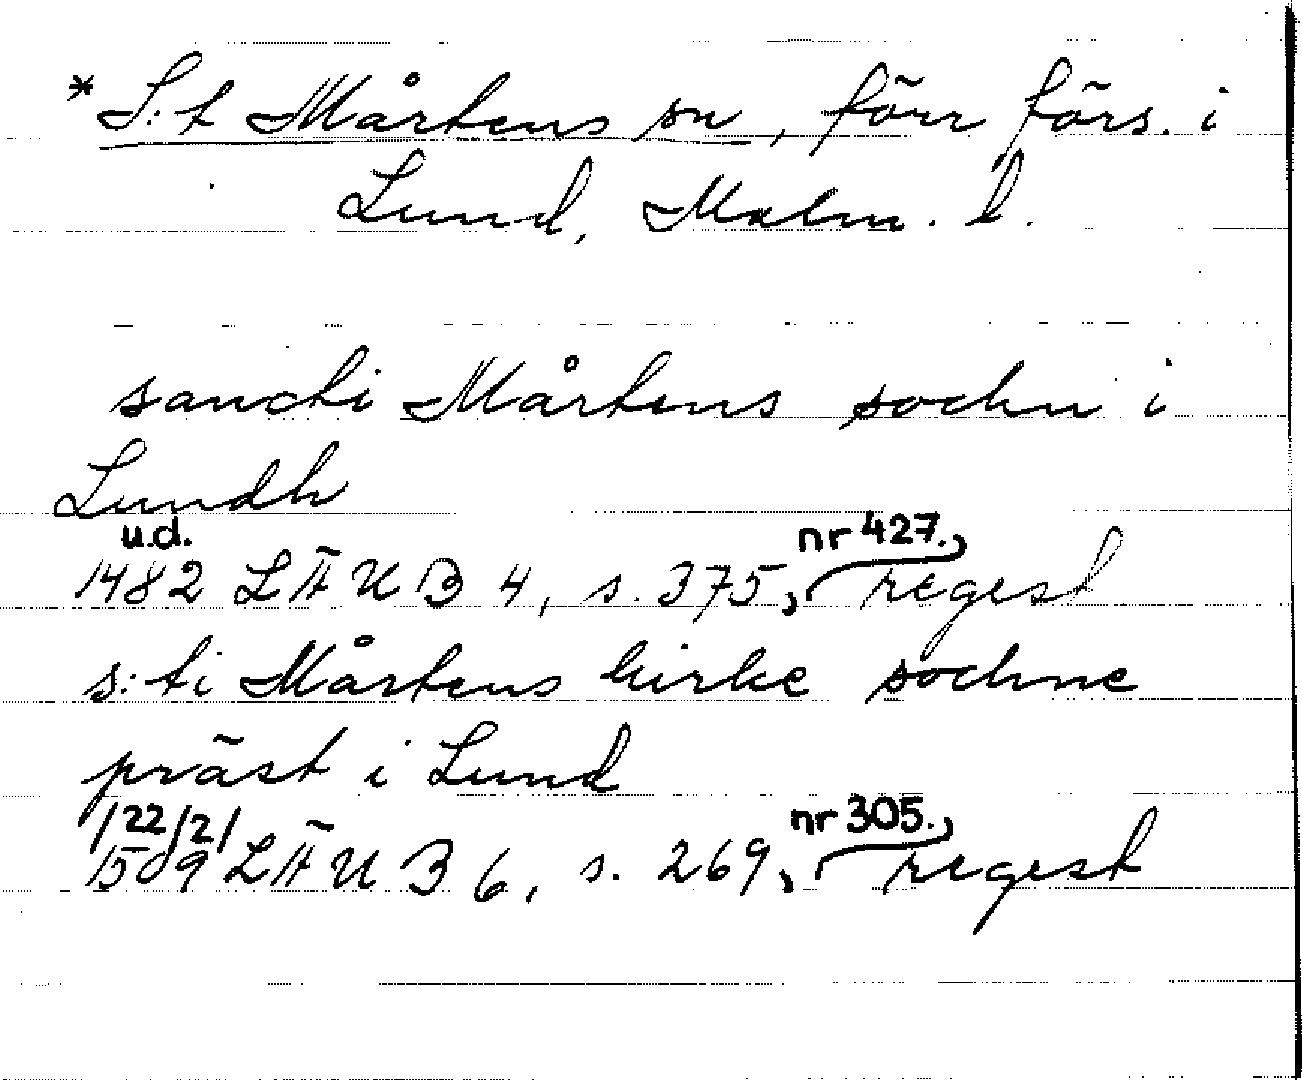 * S:t Mårtens sn, förr förs. i
Lund, Malm. l.
sancti Mårtens sochn i
Lundh
u.d. nr 427.,
1482 LÄUB 4, s. 375, regest
s:ti Mårtens kirke sochne
präst i Lund
/22/2/ nr 305.,
1509 LÄUB 6, s. 269, regest